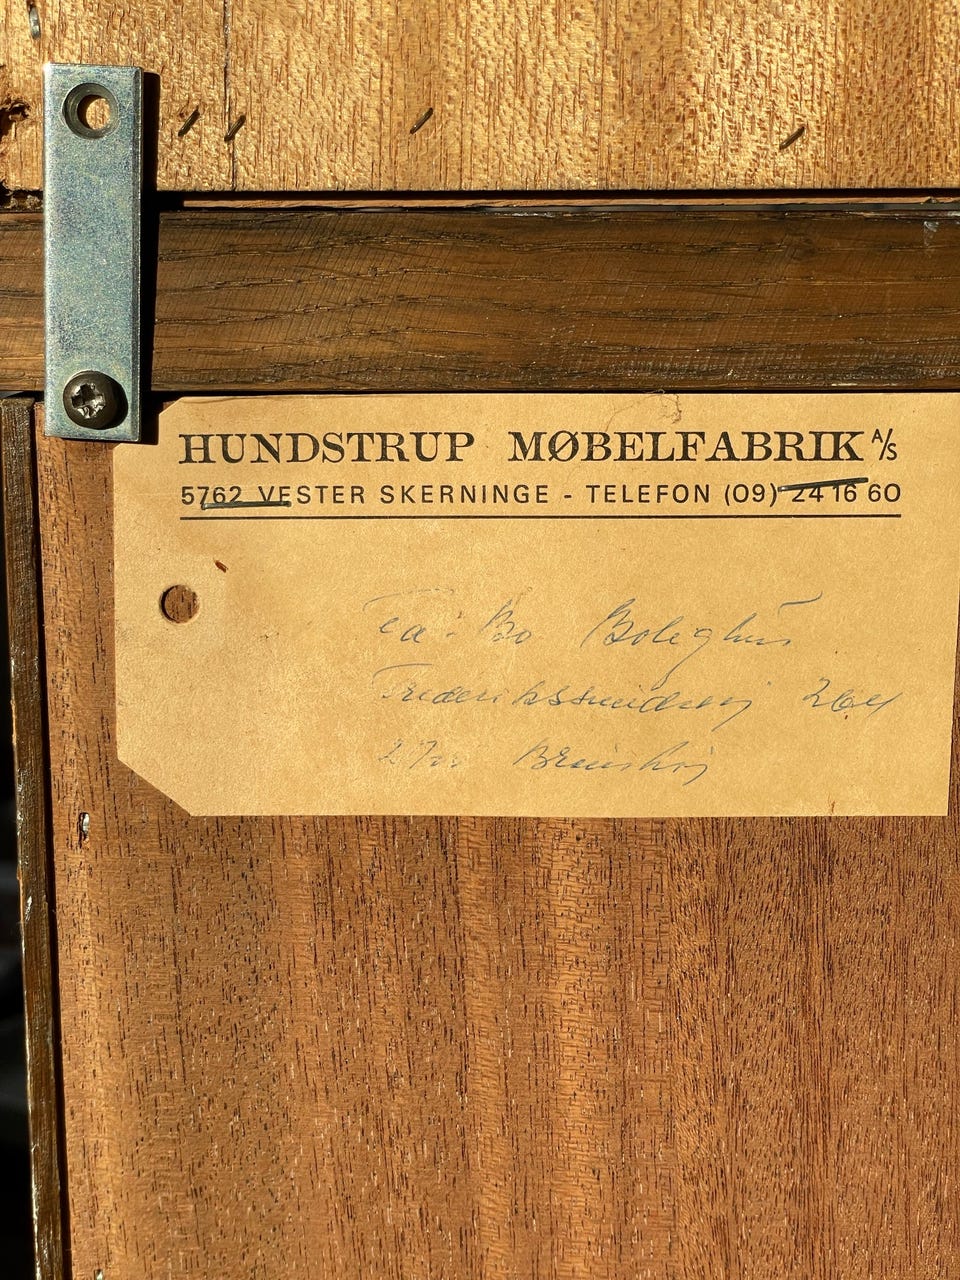 HUNDSTRUP MØBELFABRIK A/S
5762 VESTER SKERNINGE - TELEFON (09) 24 16 60
Fa: Bo Bolighus
Frederikssundsvej 264
2700 Brønshøj